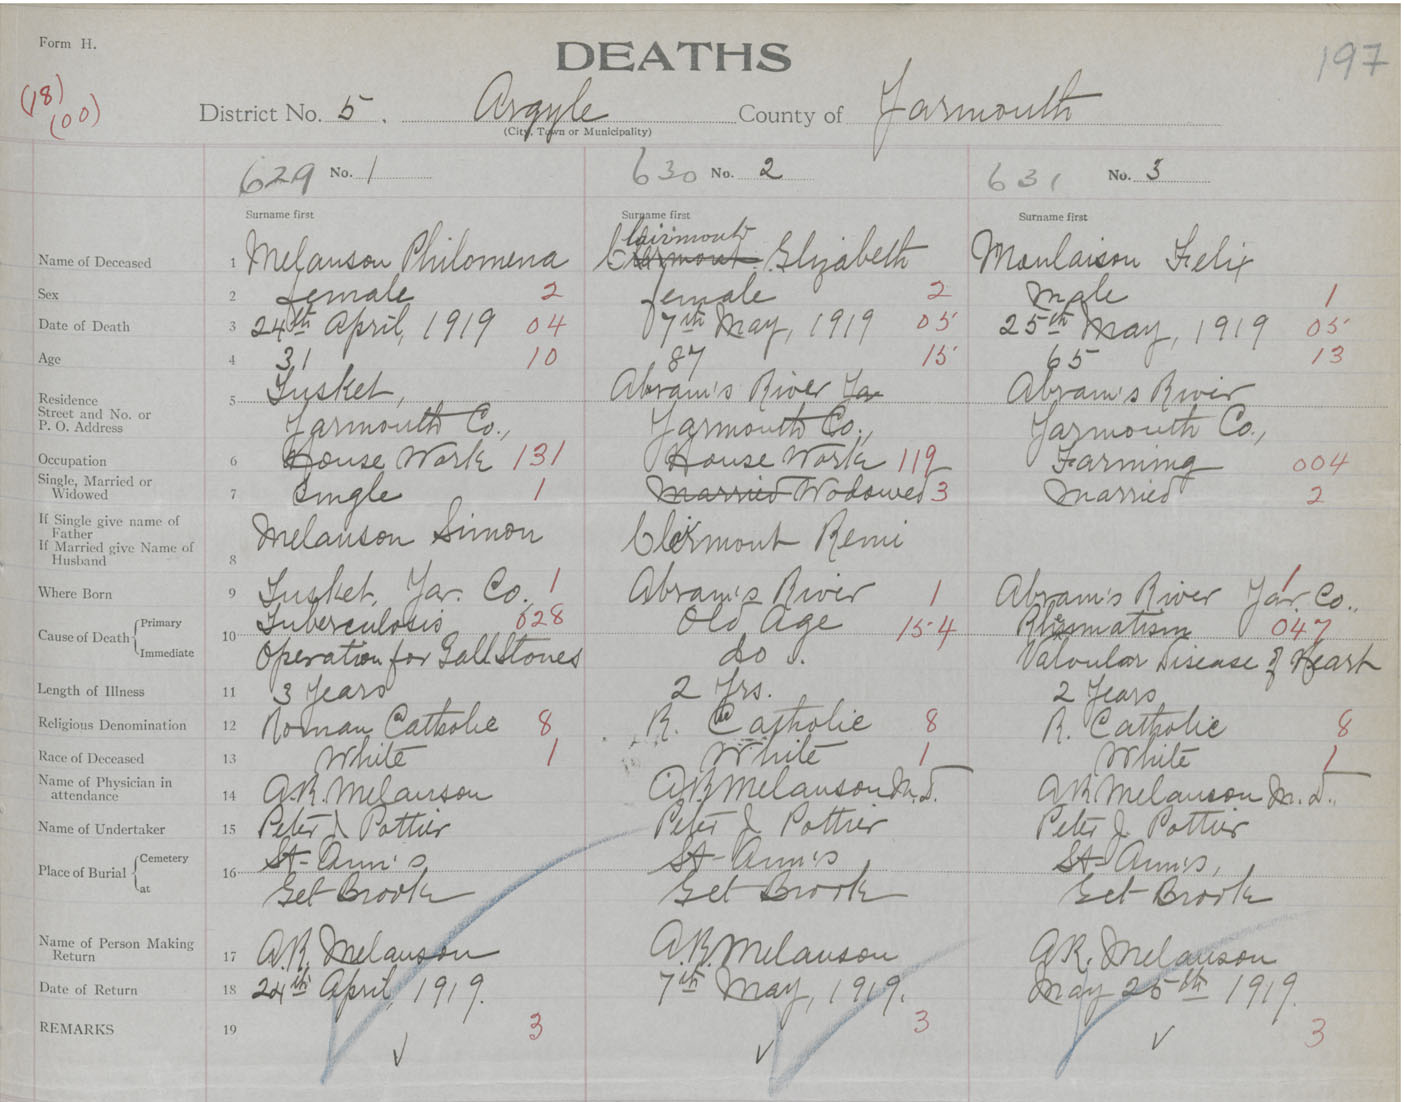 Form H.
DEATHS
197
(18)
(00)
District No. 5. Argyle County of Yarmouth
(City, Town or Municipality)
629 No. 1 630 No. 2 631 No. 3
Surname first Surname first Surname first
Clairmont
Name of Deceased 1 Melanson Philomena Clermont Elizabeth Moulaison Felix
Sex 2 female 2 female 2 male 1
Date of Death 3 24th April, 1919 04 7th May, 1919 05 25th May, 1919 05
Age 4 31 10 87 15 65 13
Residence 5 Tusket, Abram's River Yar Abram's River
Street and No. or
P. O. Address Yarmouth Co., Yarmouth Co., Yarmouth Co.,
Occupation 6 House Work 131 House Work 119 Farming 004
Single, Married or
Widowed 7 Single 1 Married Wodowed 3 Married 2
If Single give name of
Father
If Married give Name of
Husband 8 Melanson Simon Clermont Remi
Where Born 9 Tusket, Yar. Co. 1 Abram's River 1 Abram's River Yar. Co., 1
Cause of Death Primary 10 Tuberculosis 628 Old Age 154 Rheumatism 047
Immediate Operation for Gall Stones do. Valvular Disease of Heart
Length of Illness 11 3 Years 2 Yrs. 2 Years
Religious Denomination 12 Roman Catholic 8 R. Catholic 8 R. Catholic 8
Race of Deceased 13 White 1 White 1 White 1
Name of Physician in
attendance 14 A.R. Melanson A.R. Melanson M.D. A R Melanson M.D.
Name of Undertaker 15 Peter J Pottier Peter J Pottier Peter J Pottier
Place of Burial Cemetery 16 St-Ann's St-Ann's St-Ann's,
at Eel Brook Eel Brook Eel Brook
Name of Person Making
Return 17 A.R. Melanson A.R. Melanson A R. Melanson
Date of Return 18 24th April, 1919. 7th May, 1919. May 25th 1919.
REMARKS 19 3 3 3